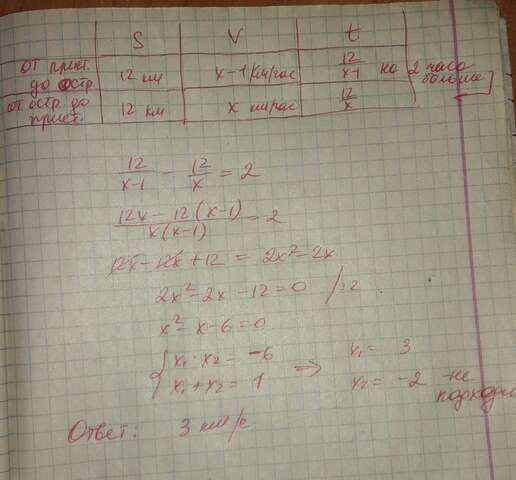 S V t
от прист. до остр. 12 км x-1 км/час 12/(x-1) на 2 часа больше
от остр. до прист. 12 км x км/час 12/x
12/(x-1) - 12/x = 2
(12x - 12(x-1))/(x(x-1)) = 2
12x - 12x + 12 = 2x² - 2x
2x² - 2x - 12 = 0 /:2
x² - x - 6 = 0
{ x₁ · x₂ = -6 ⇒ x₁ = 3
x₁ + x₂ = 1 x₂ = -2 - не подходи
Ответ: 3 км/ч